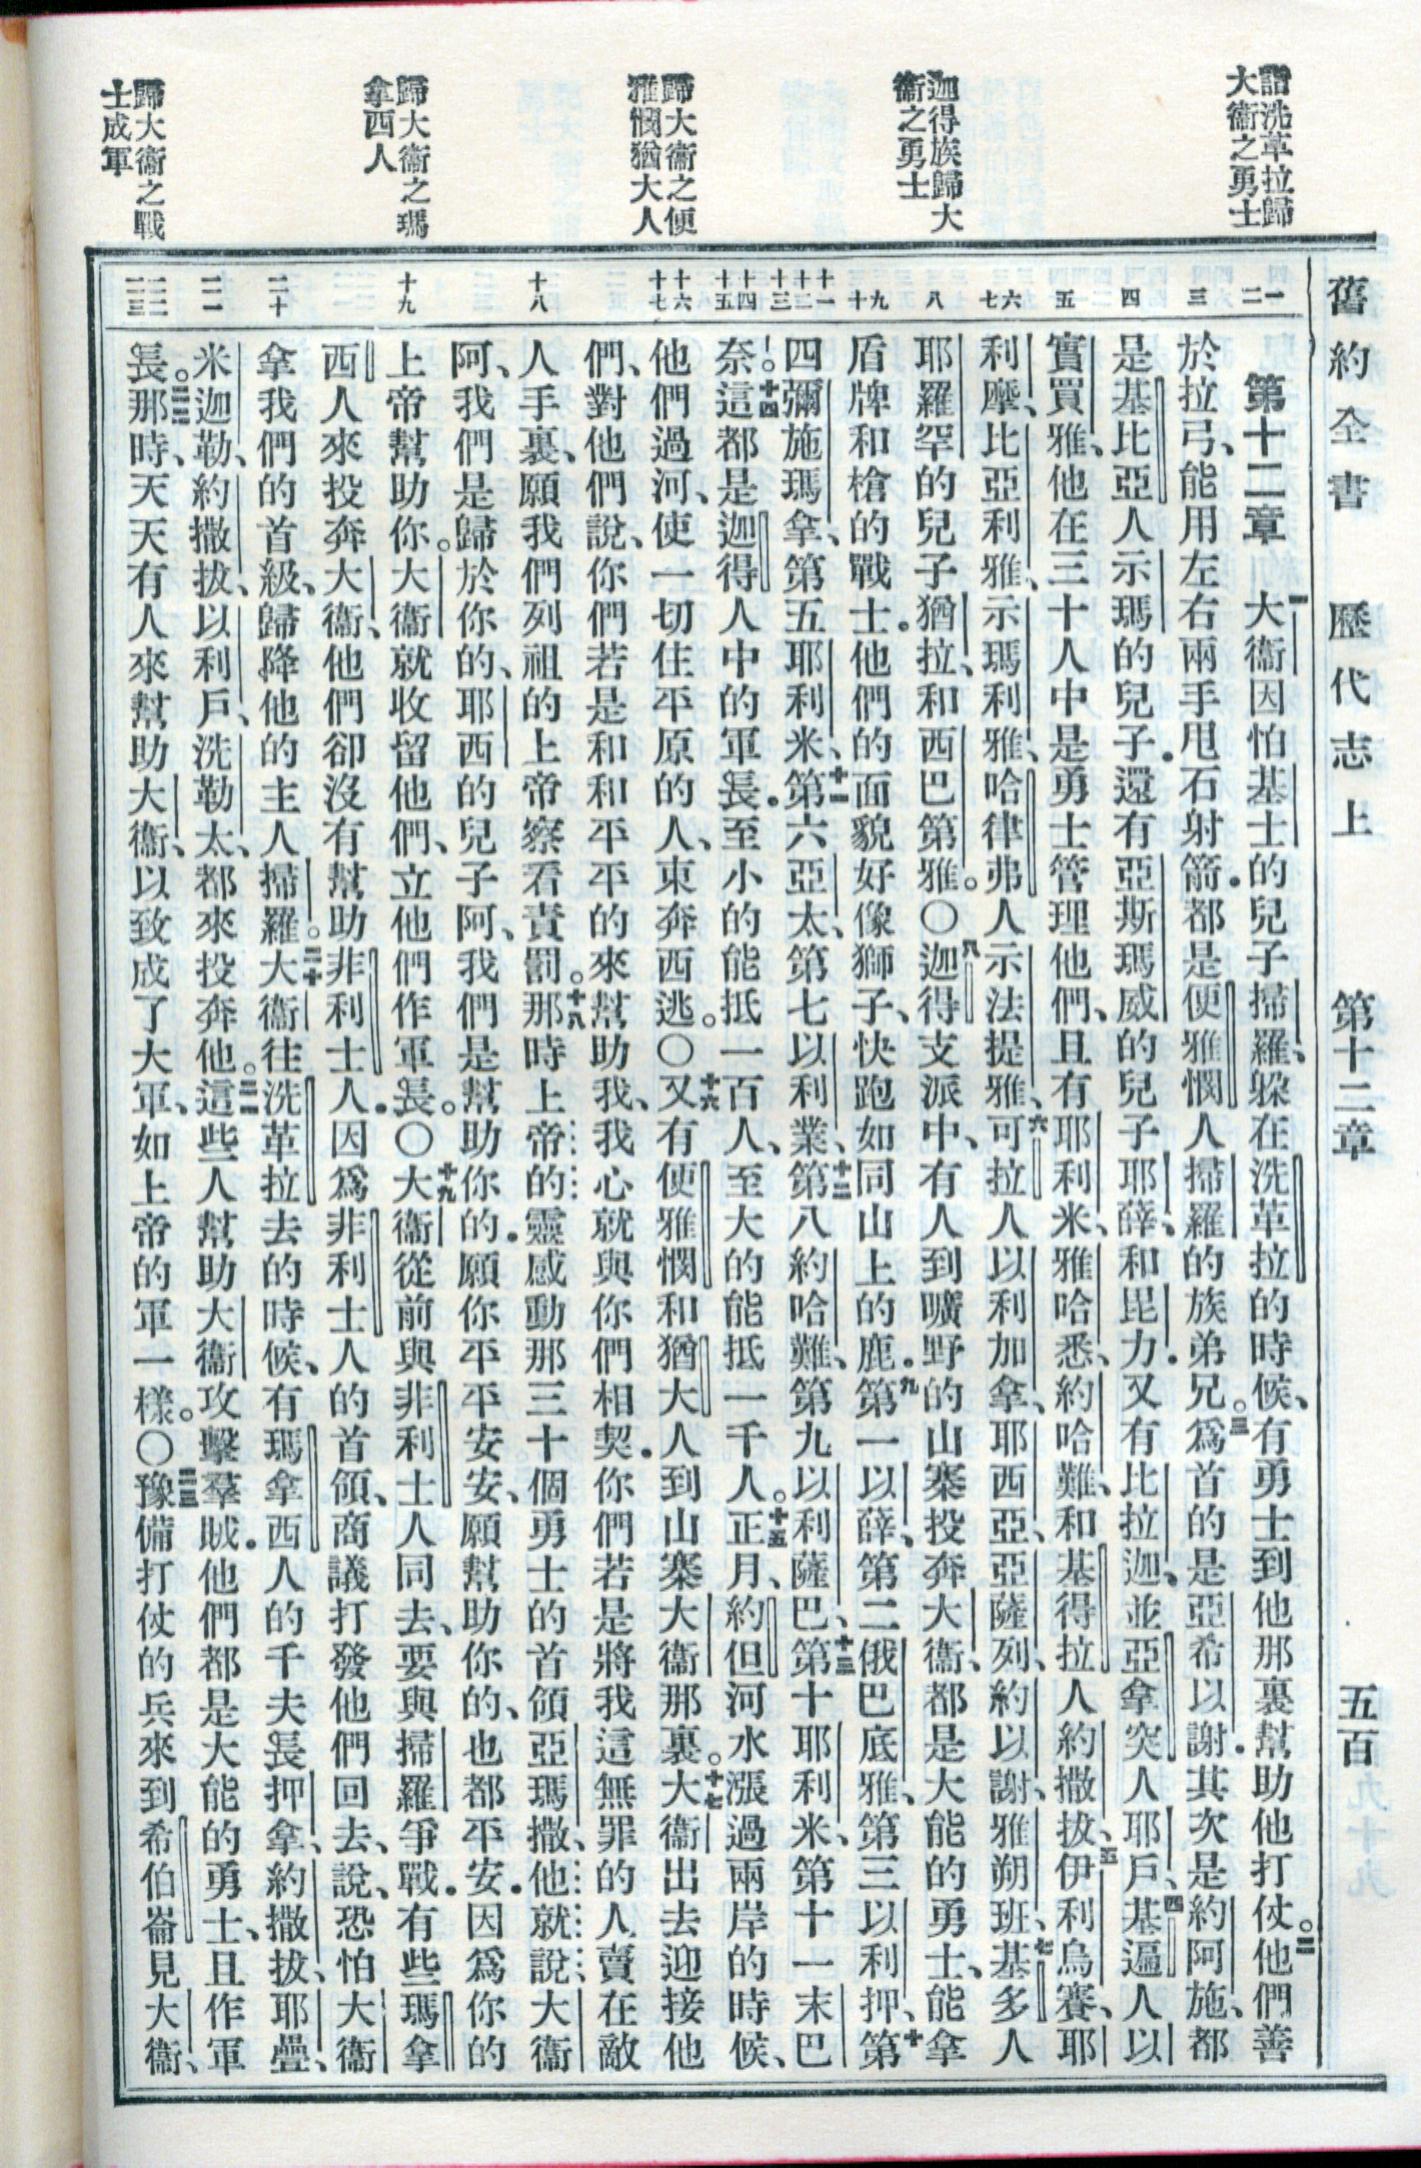 舊約全書　歷代志上　第十二章　五百
詣洗革拉歸
大衞之勇士
迦得族歸大
衞之勇士
歸大衞之便
雅憫猶大人
歸大衞之瑪
拿西人
歸大衞之戰
士成軍
一 二 三 四 五 六 七 八 九 十 十一 十二 十三 十四 十五 十六 十七 十八 十九 二十 二一 二二 二三
第十二章　一大衞因怕基士的兒子掃羅、躱在洗革拉的時候、有勇士到他那裏幫助他打仗。二他們善
於拉弓、能用左右兩手甩石射箭．都是便雅憫人掃羅的族弟兄。三爲首的是亞希以謝．其次是約阿施、都
是基比亞人示瑪的兒子．還有亞斯瑪威的兒子耶薛、和毘力．又有比拉迦、並亞拿突人耶戶、四基遍人以
實買雅、他在三十人中是勇士管理他們、且有耶利米、雅哈悉、約哈難、和基得拉人約撒拔、五伊利烏賽、耶
利摩、比亞利雅、示瑪利雅、哈律弗人示法提雅、六可拉人以利加拿、耶西亞、亞薩列、約以謝、雅朔班、七基多人
耶羅罕的兒子猶拉、和西巴第雅。〇八迦得支派中、有人到曠野的山寨投奔大衞、都是大能的勇士、能拿
盾牌和槍的戰士．他們的面貌好像獅子、快跑如同山上的鹿．九第一以薛、第二俄巴底雅、第三以利押、十第
四彌施瑪拿、第五耶利米、十一第六亞太、第七以利業、十二第八約哈難、第九以利薩巴、十三第十耶利米、第十一末巴
奈。十四這都是迦得人中的軍長．至小的能抵一百人、至大的能抵一千人。十五正月、約但河水漲過兩岸的時候、
他們過河、使一切住平原的人、東奔西逃。〇十六又有便雅憫和猶大人到山寨大衞那裏。十七大衞出去迎接他
們、對他們說、你們若是和和平平的來幫助我、我心就與你們相契．你們若是將我這無罪的人賣在敵
人手裏、願我們列祖的上帝察看責罰。十八那時上帝的靈感動那三十個勇士的首領亞瑪撒、他就說、大衞
阿、我們是歸於你的、耶西的兒子阿、我們是幫助你的．願你平平安安、願幫助你的、也都平安．因爲你的
上帝幫助你。大衞就收留他們、立他們作軍長。〇十九大衞從前與非利士人同去、要與掃羅爭戰．有些瑪拿
西人來投奔大衞、他們卻沒有幫助非利士人．因爲非利士人的首領、商議打發他們回去、說、恐怕大衞
拿我們的首級、歸降他的主人掃羅。二十大衞往洗革拉去的時候、有瑪拿西人的千夫長押拿、約撒拔、耶疊、
米迦勒、約撒拔、以利戶、洗勒太、都來投奔他。二一這些人幫助大衞攻擊羣賊．他們都是大能的勇士、且作軍
長。二二那時、天天有人來幫助大衞、以致成了大軍、如上帝的軍一樣。〇二三豫備打仗的兵來到希伯崙見大衞、